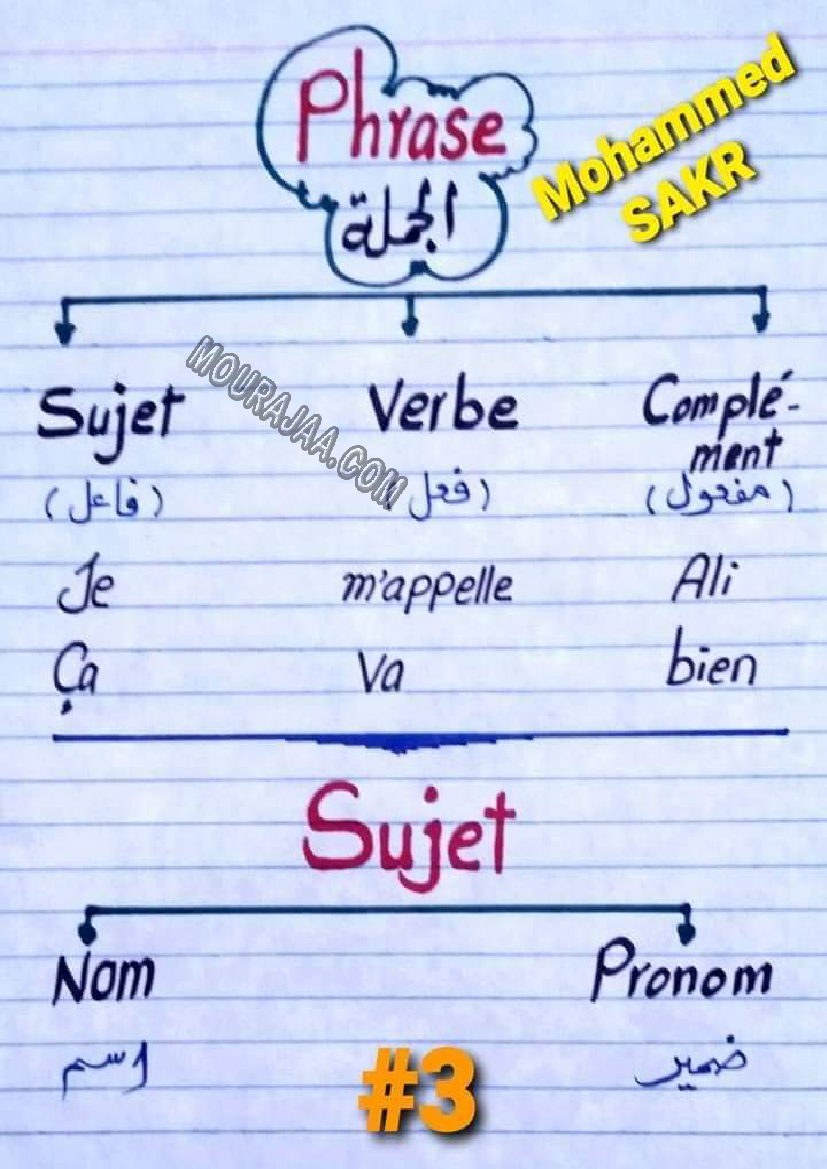 Phrase
الجملة
Mohammed
SAKR
MOURAJAA.COM
Sujet Verbe Complé-
ment
(فاعل) (فعل) (مفعول)
Je m'appelle Ali
Ça va bien
Sujet
Nom Pronom
اسم ضمير
#3